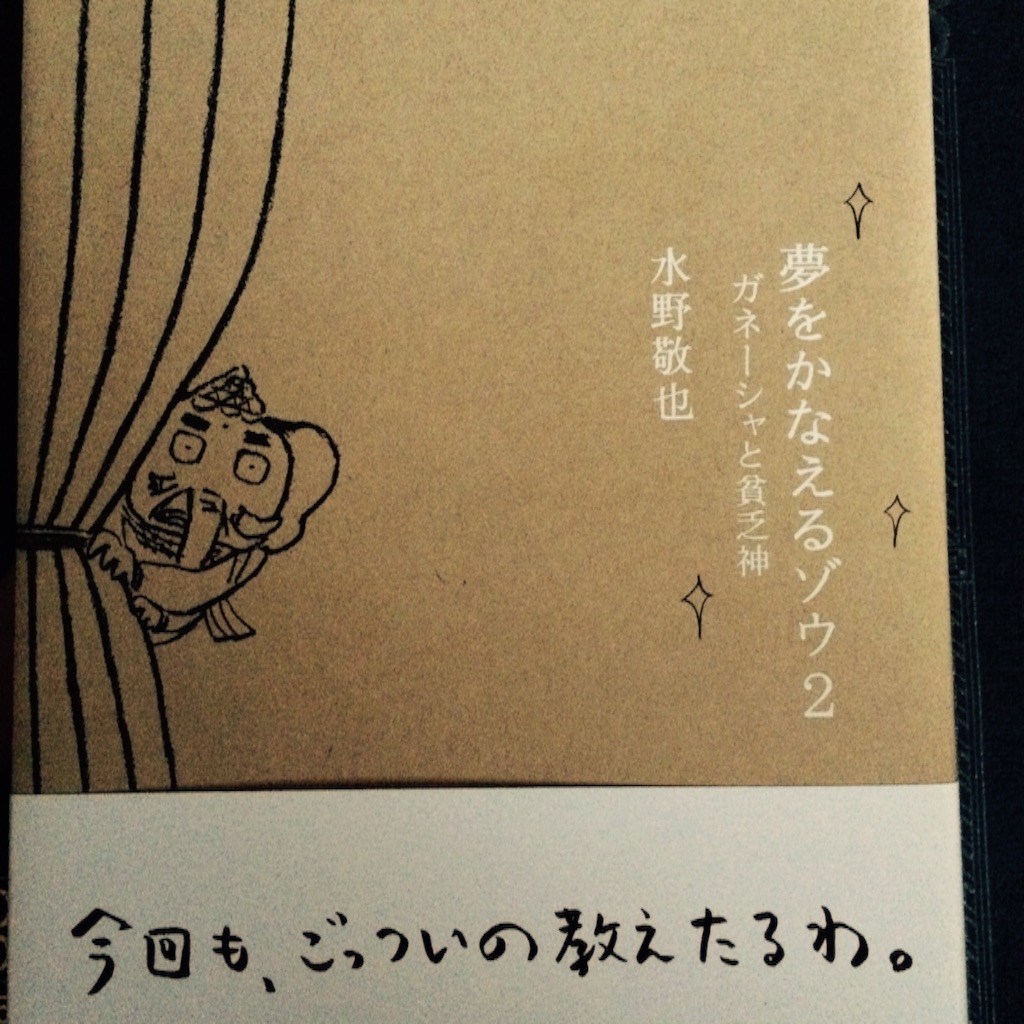 夢をかなえるゾウ2
ガネーシャと貧乏神
水野敬也
今回も、ごっついの教えたるわ。